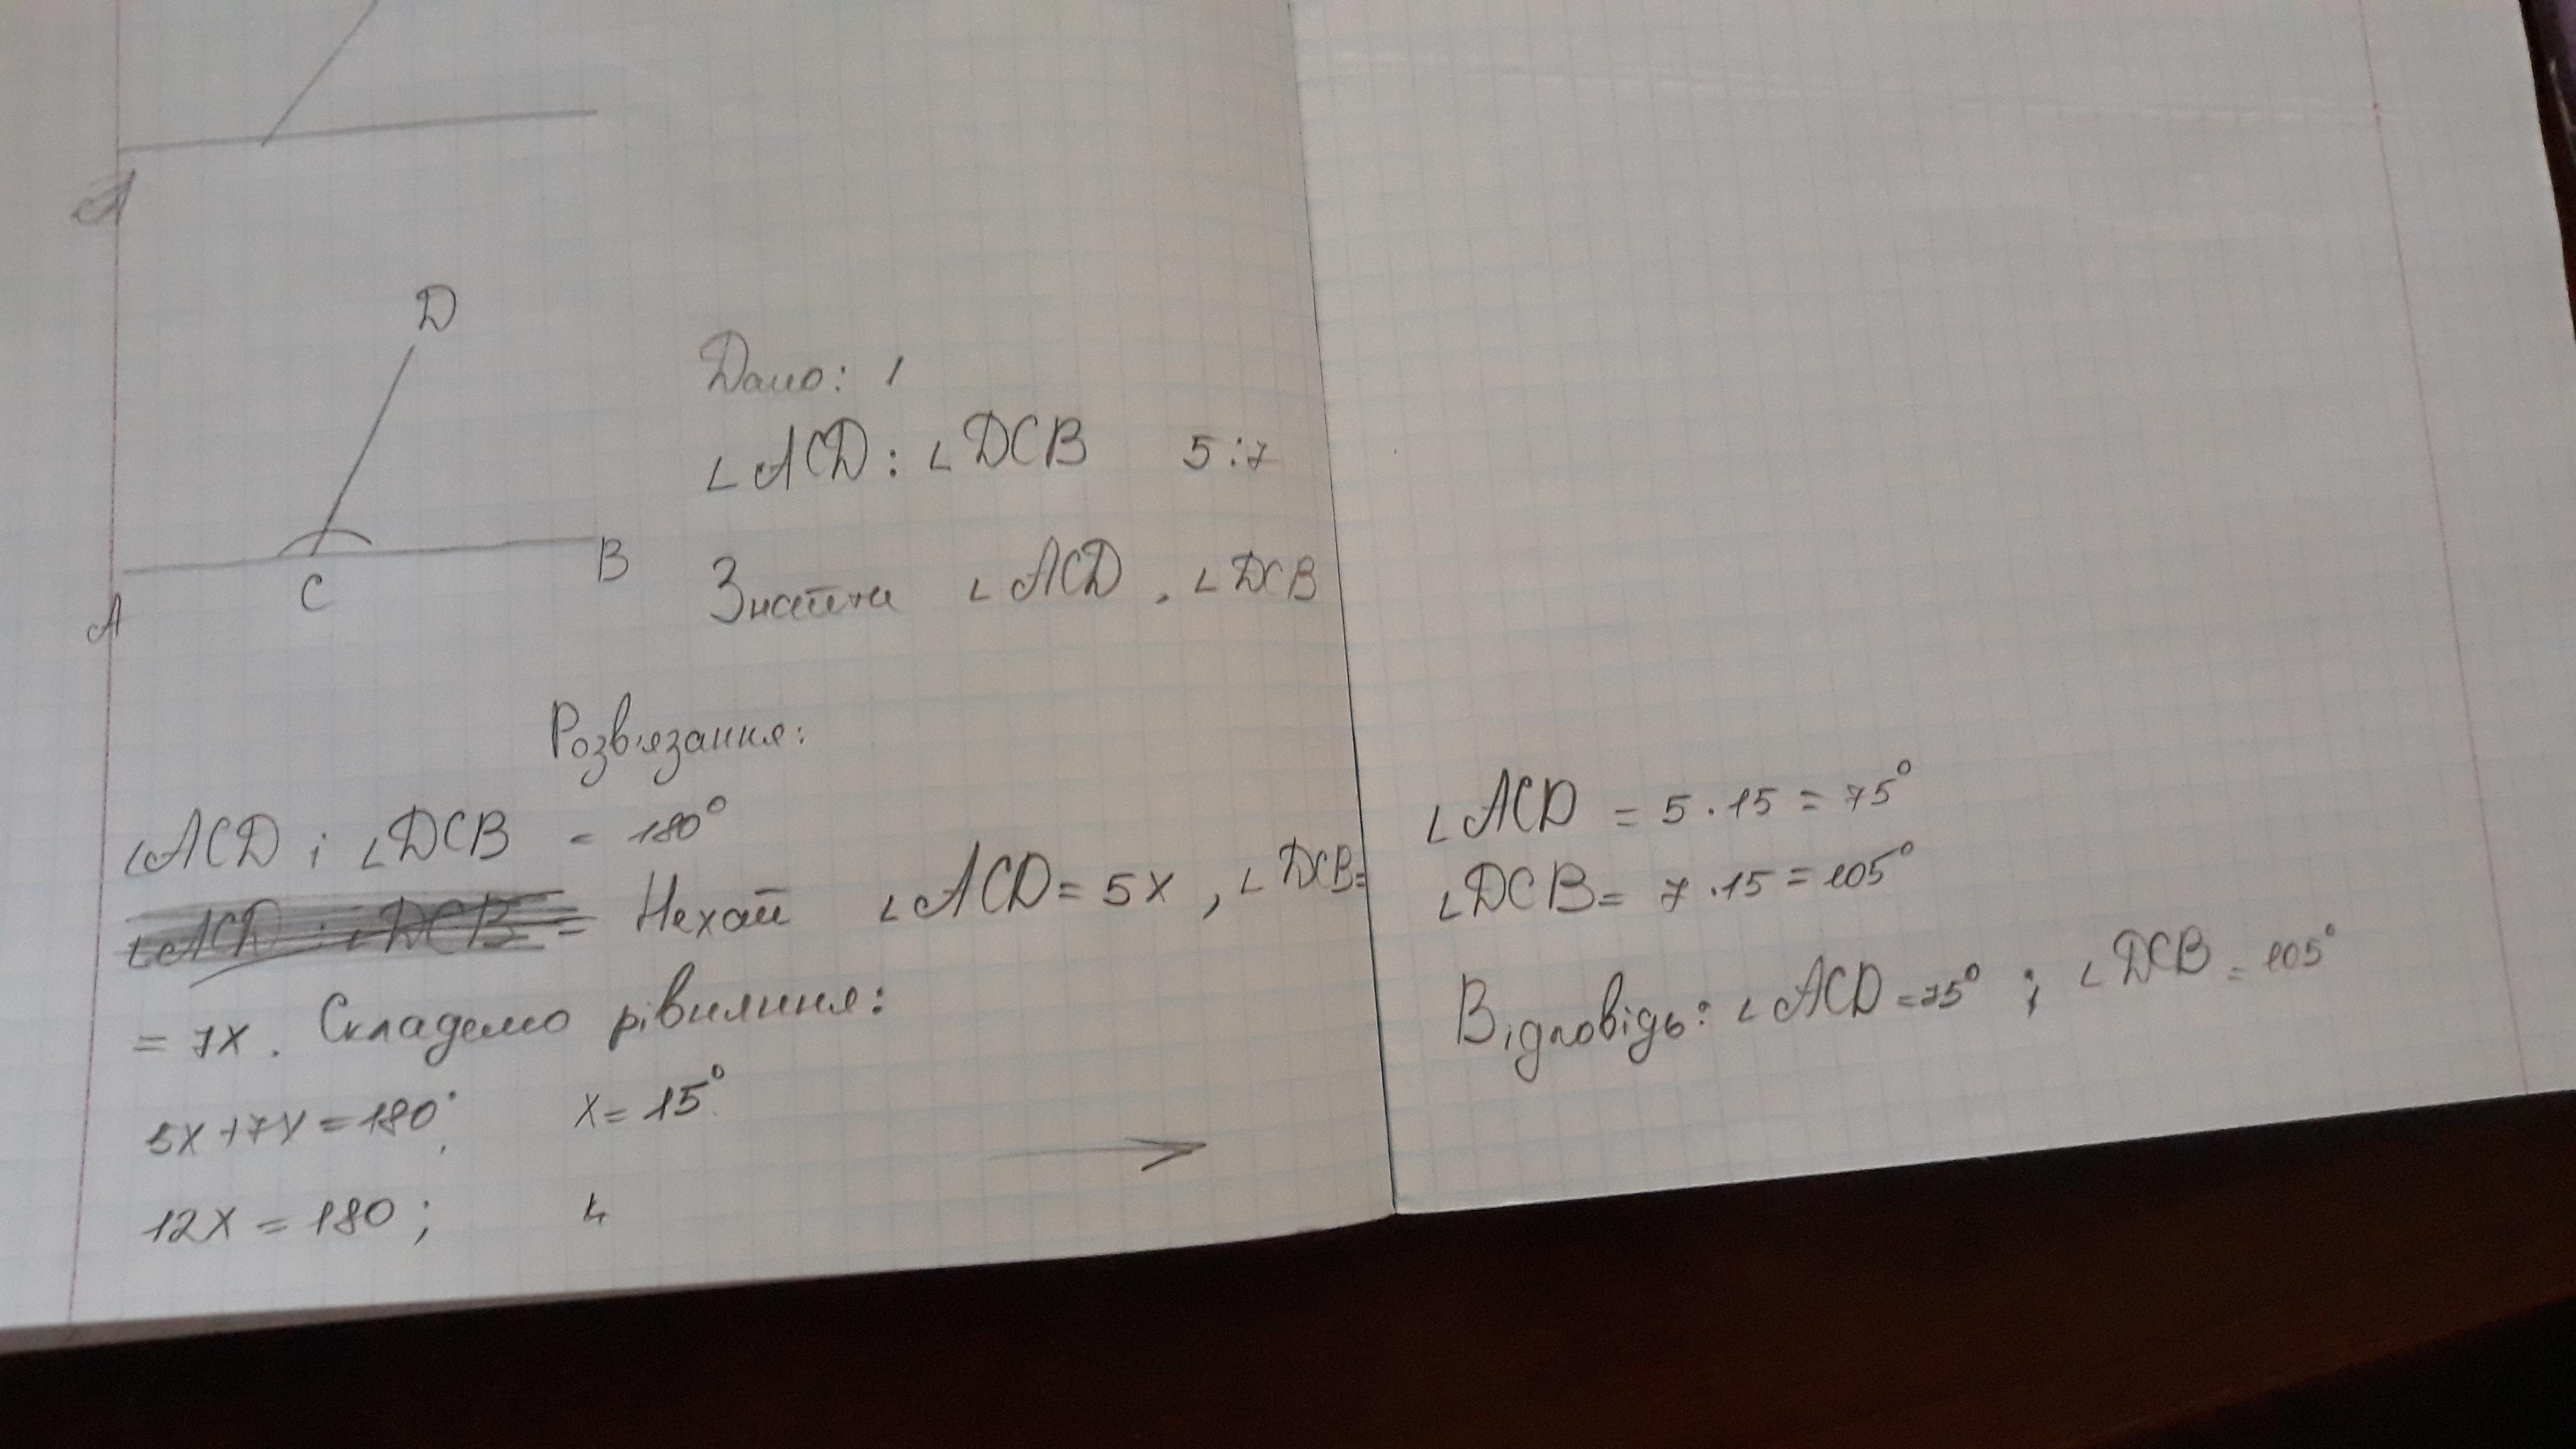 A
D
A
C
B
Дано:
∠ACD : ∠DCB 5:7
Знайти ∠ACD, ∠DCB
Розв'язання:
∠ACD і ∠DCB = 180°
∠ACD : ∠DCB = Нехай ∠ACD = 5x, ∠DCB=
= 7x. Складемо рівняння:
5x+7x=180°; x=15°
12x = 180;
∠ACD = 5·15=75°
∠DCB= 7·15=105°
Відповідь: ∠ACD=75°; ∠DCB=105°